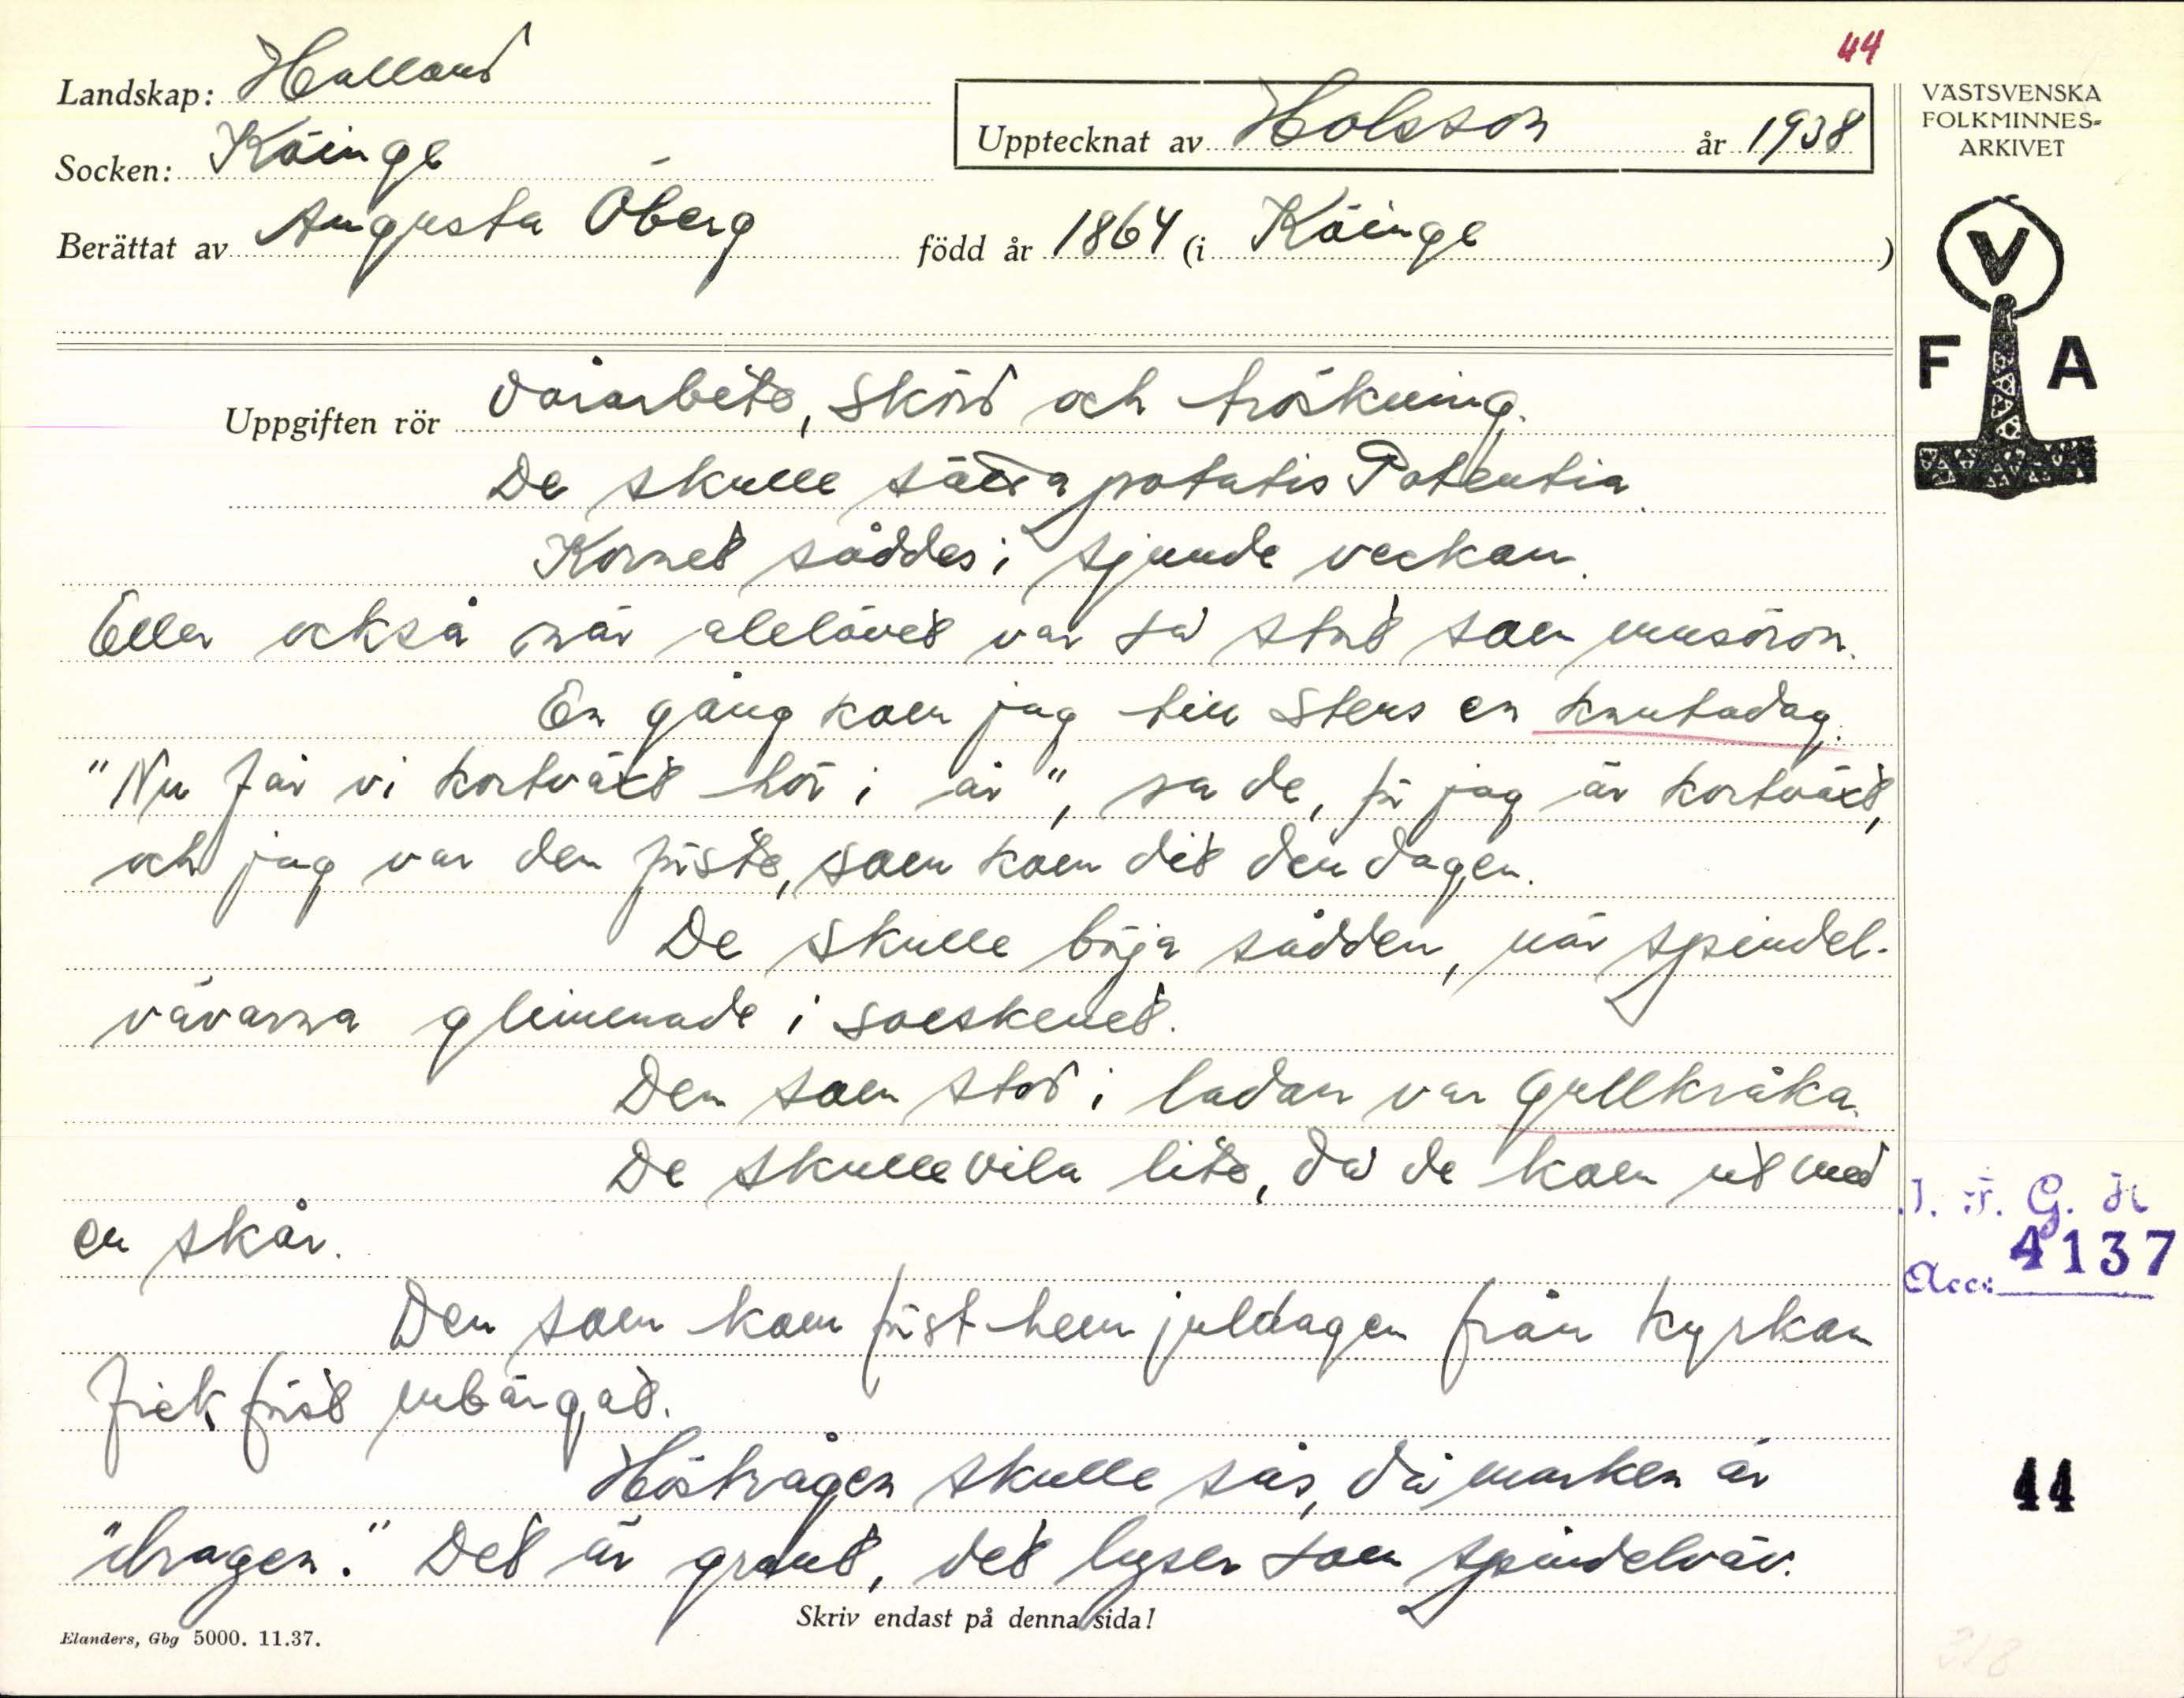 44
Landskap: Halland
Socken: Köinge
Upptecknat av Holsson år 1938
Berättat av Augusta Öberg född år 1864 (i Köinge)
VÄSTSVENSKA
FOLKMINNES-
ARKIVET
V
F A
Uppgiften rör Vårarbete, skörd och tröskning.
De skulle sätta potatis Potentia.
Kornet såddes i sjunde veckan.
Eller också när alelövet var så stort som musöron.
En gång kom jag till Stens en knutadag.
"Nu får vi kortväxt hör i år", sa de, för jag är kortväxt,
och jag var den första, som kom dit den dagen.
De skulle börja sådden, när spindel-
vävarna glimmade i solskenet.
Den som stod i ladan var gullkråka.
De skulle vila lite, då de kom ut med
en skår.
Den som kom först hem juldagen från kyrkan
fick först inbärgat.
Höströgen skulle sås, då marken är
"dragen." Det är grant, det lyser som spindelväv.
I. F. G. H
Acc: 4137
44
Skriv endast på denna sida!
Elanders, Gbg 5000. 11.37.
318